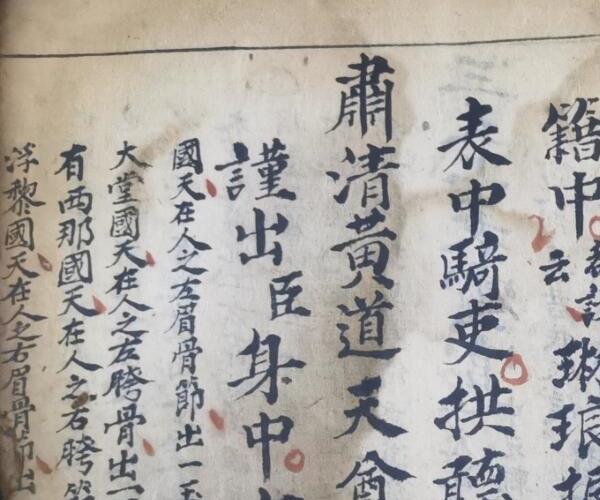 籍中
者
云
琳琅振
表中騎吏拱聽
肅清黃道天
謹出臣身中
國天在人之左眉骨節出一玉
大堂國天在人之左胯骨出一
有西那國天在人之右胯
浮黎國天在人之右眉骨節出